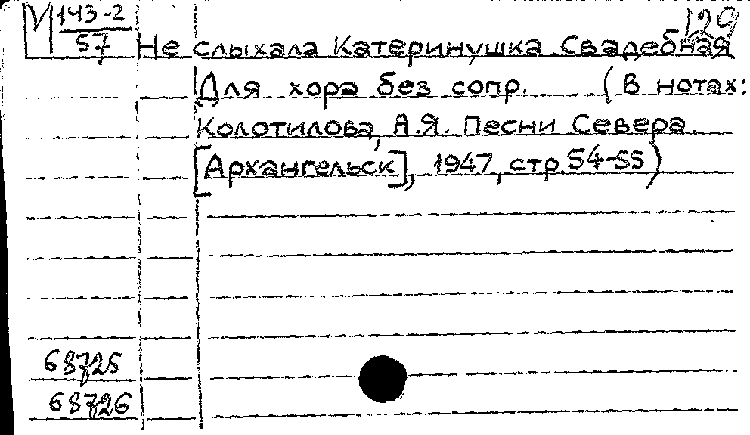 М 143-2
57
129
Не слыхала Катеринушка Свадебная
Для хора без сопр. (В нотах:
Колотилова, А.Я. Песни Севера.
[Архангельск], 1947, стр. 54-55)
68725
68726